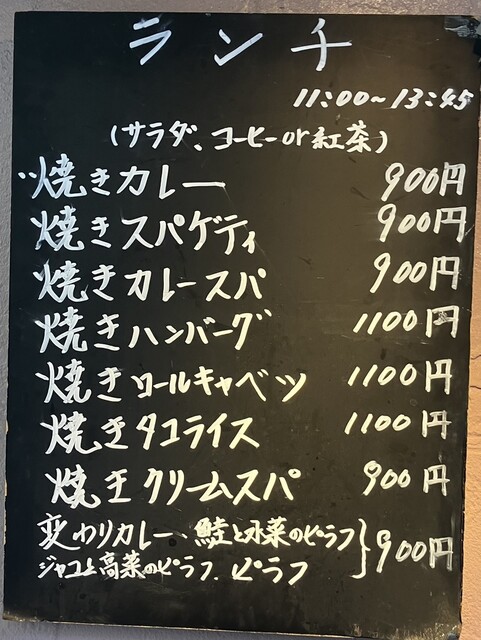 ランチ
11:00~13:45
(サラダ、コーヒーor紅茶)
焼きカレー 900円
焼きスパゲティ 900円
焼きカレースパ 900円
焼きハンバーグ 1100円
焼きロールキャベツ 1100円
焼きタコライス 1100円
焼きクリームスパ 900円
変わりカレー、鮭と水菜のピラフ
ジャコと高菜のピラフ、ピラフ } 900円